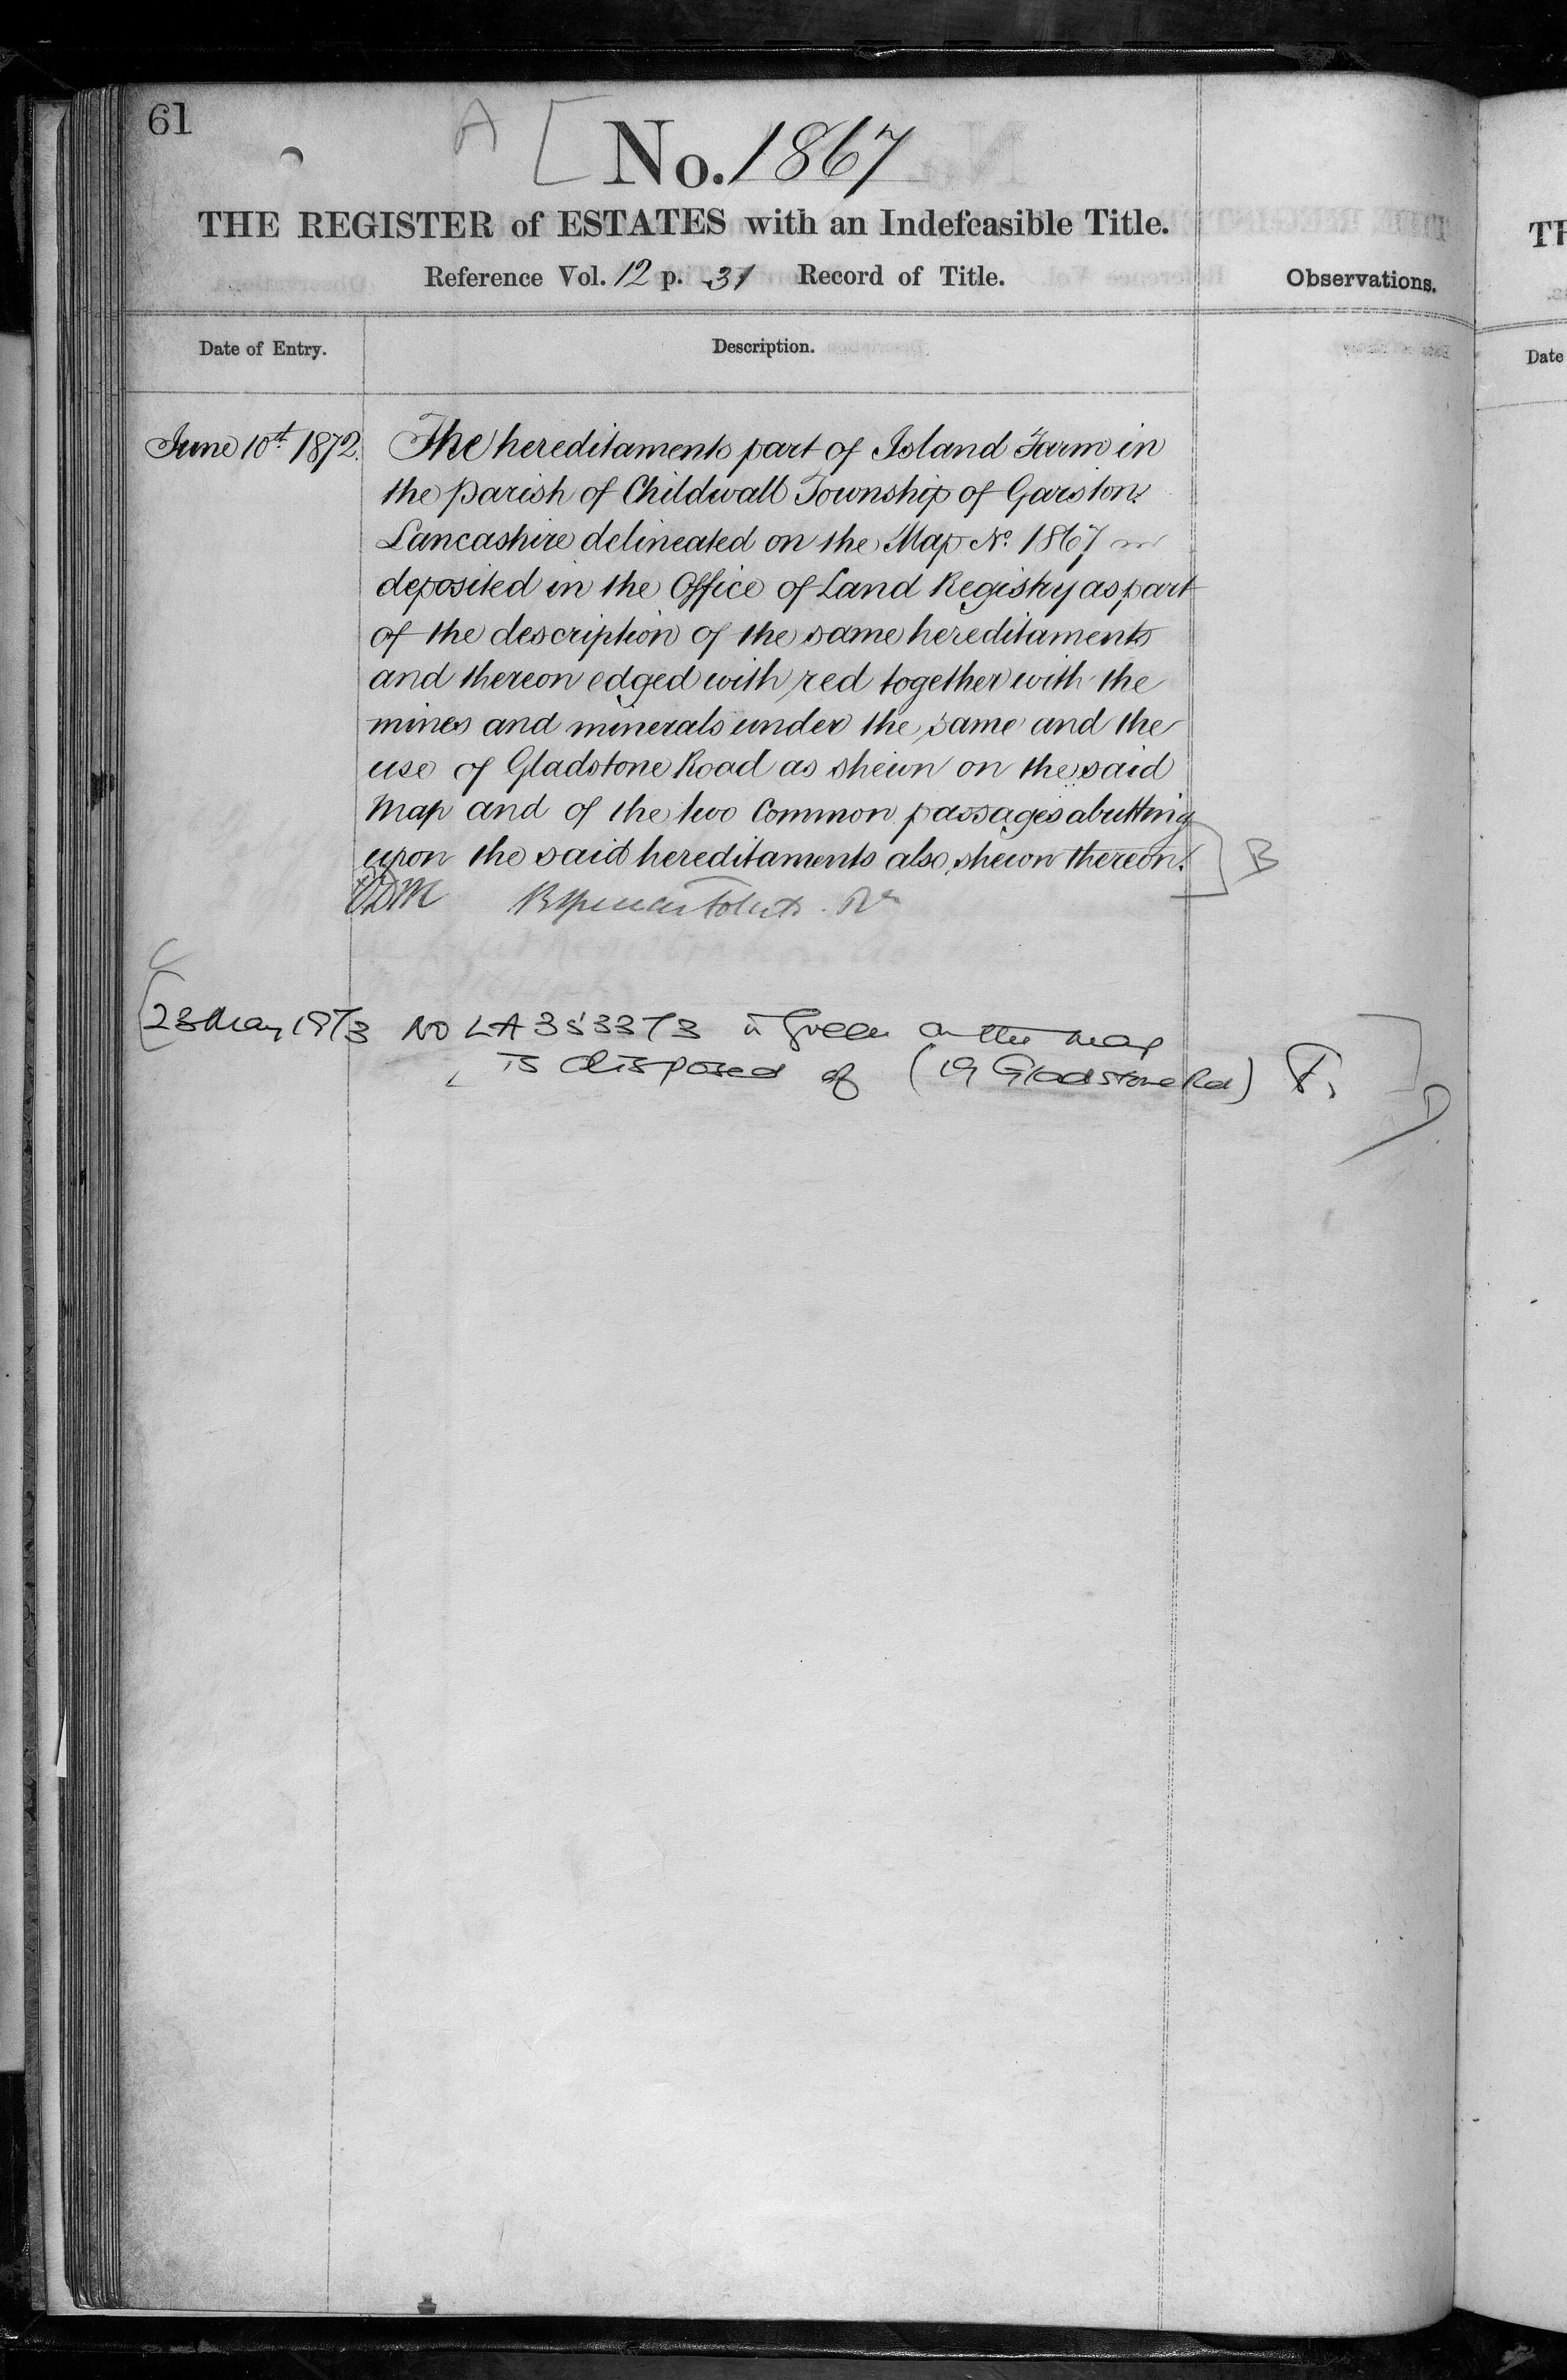 61
A [ No. 1867
THE REGISTER of ESTATES with an Indefeasible Title.
Reference Vol. 12 p. 31 Record of Title.
Observations.
Date of Entry.
Description.
June 10th 1872.
The hereditaments part of Island Farm in
the parish of Childwall Township of Garston
Lancashire delineated on the Map No. 1867
deposited in the Office of Land Registry as part
of the description of the same hereditaments
and thereon edged with red together with the
mines and minerals under the same and the
use of Gladstone Road as shewn on the said
Map and of the two Common passages abutting
upon the said hereditaments also shewn thereon. ] B
C
[23 May 1973 NO LA353373 in green on the map
is disposed of (19 Gladstone Rd) ] D
TH
Date